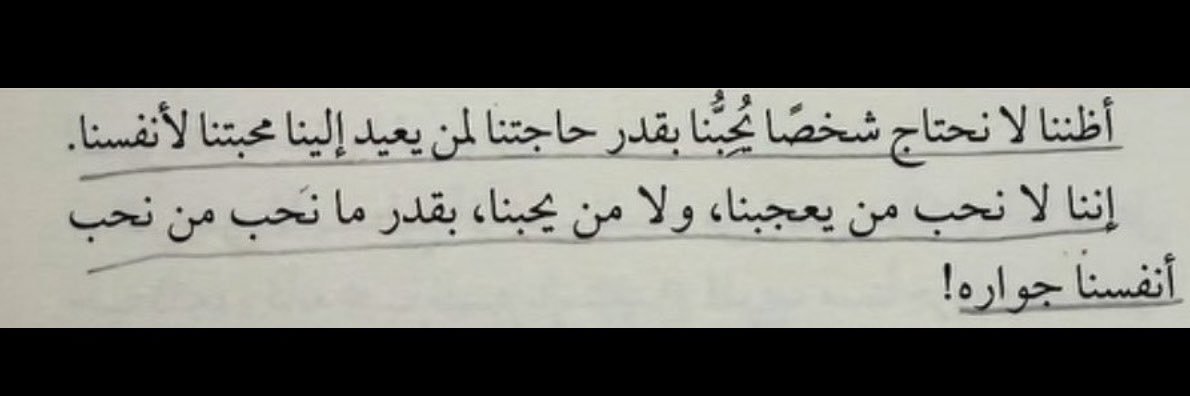 أظننا لا نحتاج شخصًا يُحِبُّنا بقدر حاجتنا لمن يعيد إلينا محبتنا لأنفسنا.
إننا لا نحب من يعجبنا، ولا من يحبنا، بقدر ما نَحب من نحب
أنفسنا جواره!